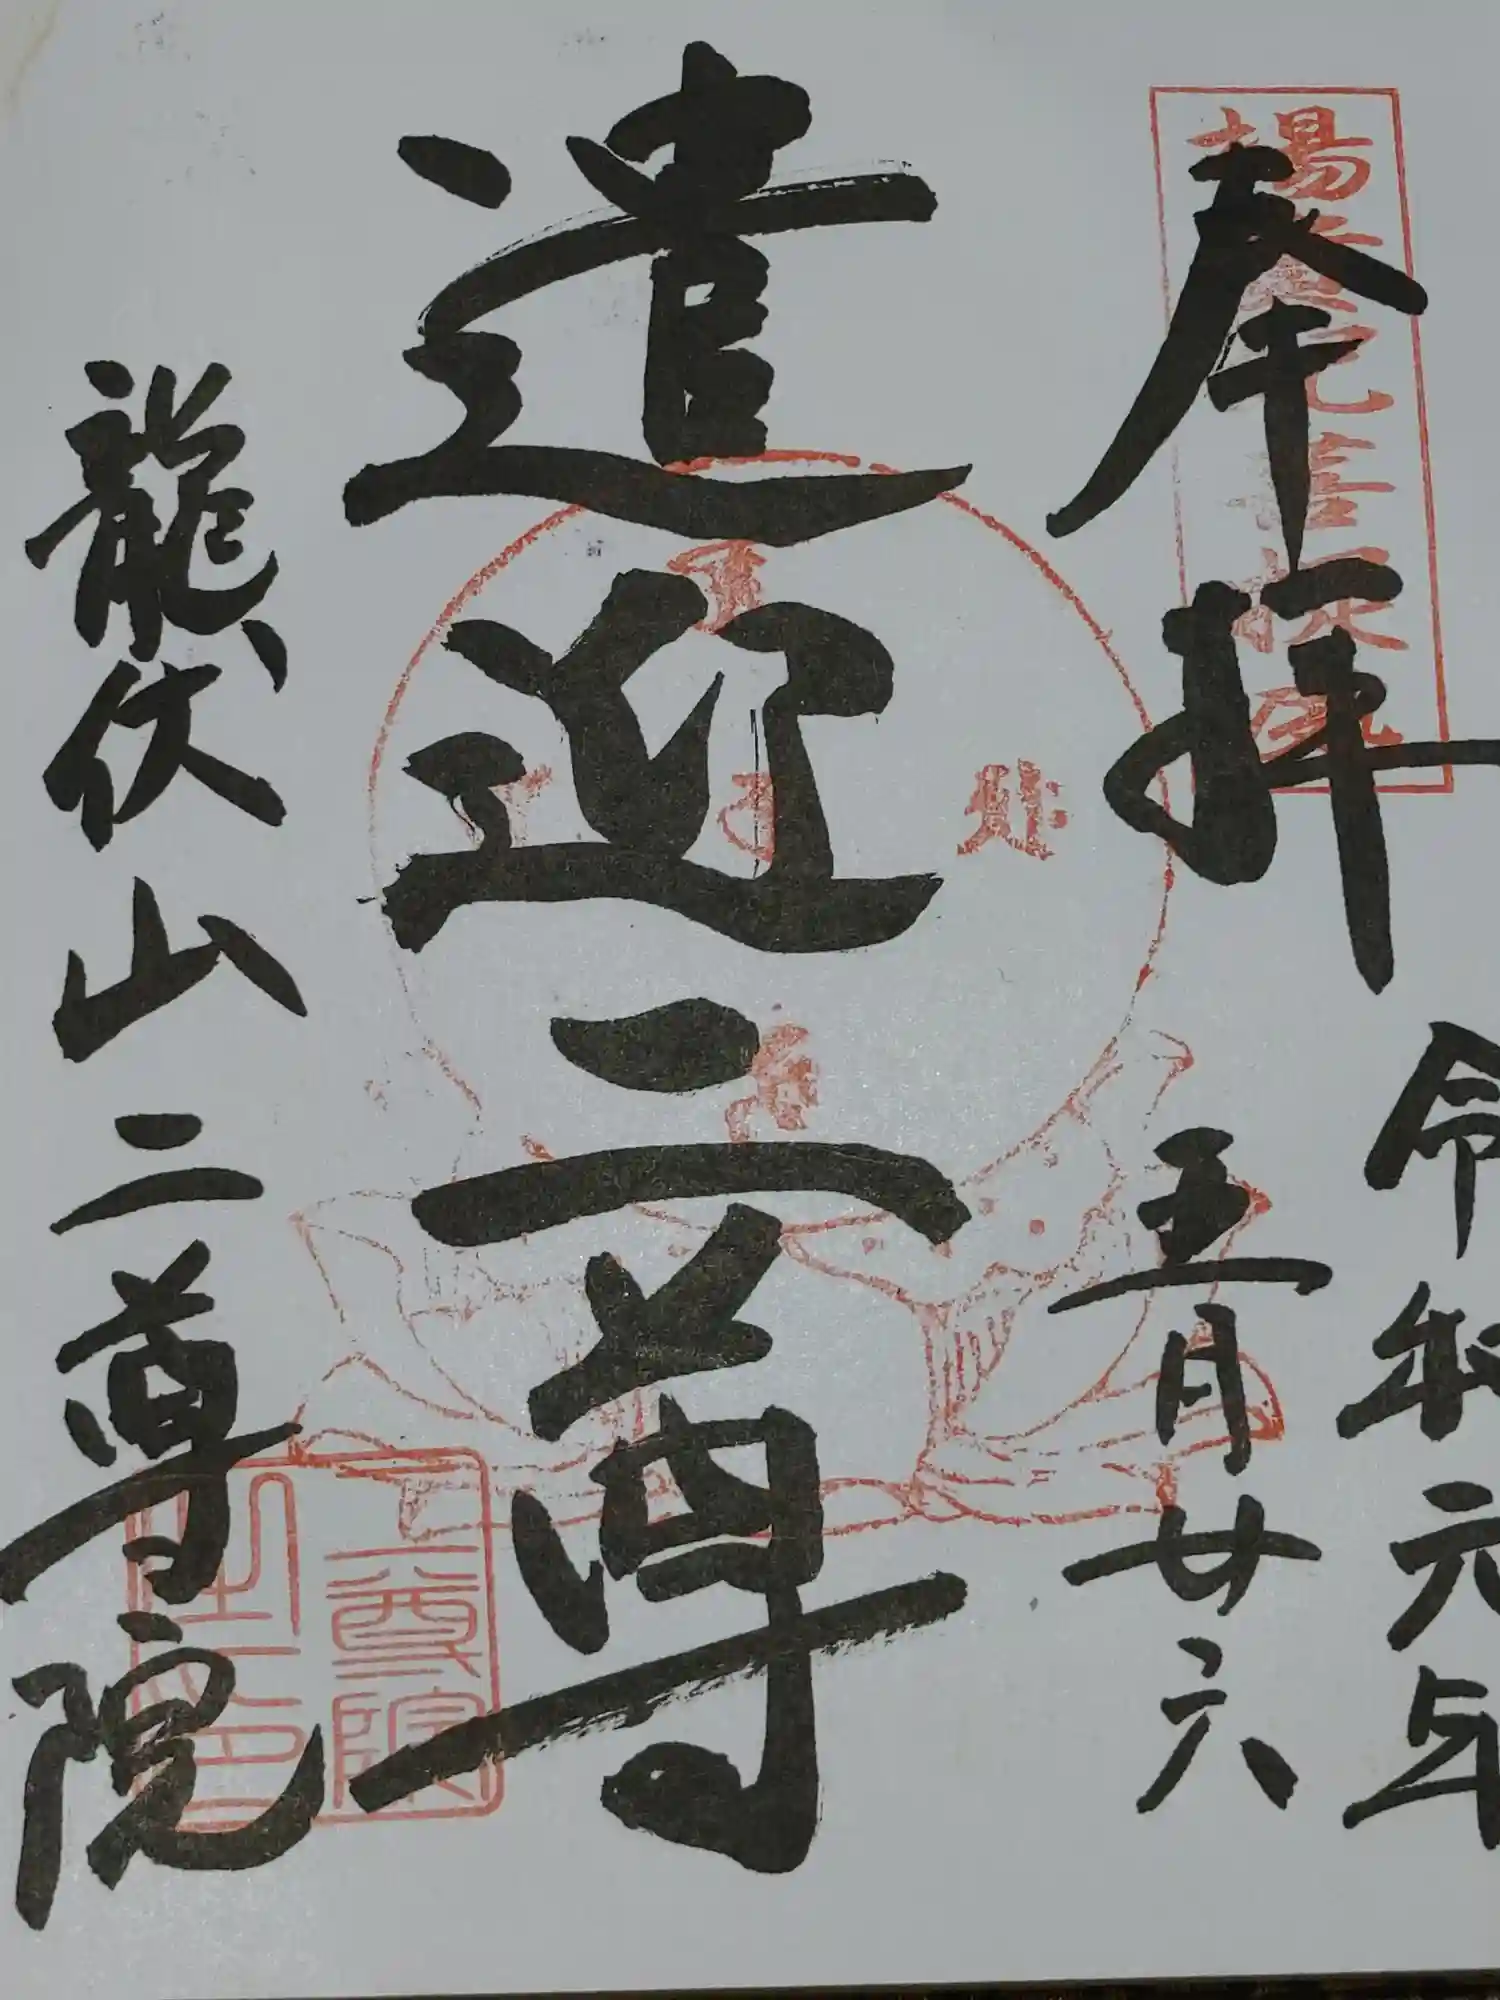 奉拝
令和元年
五月廿六
遣迎二尊
龍伏山二尊院
二尊院
之印